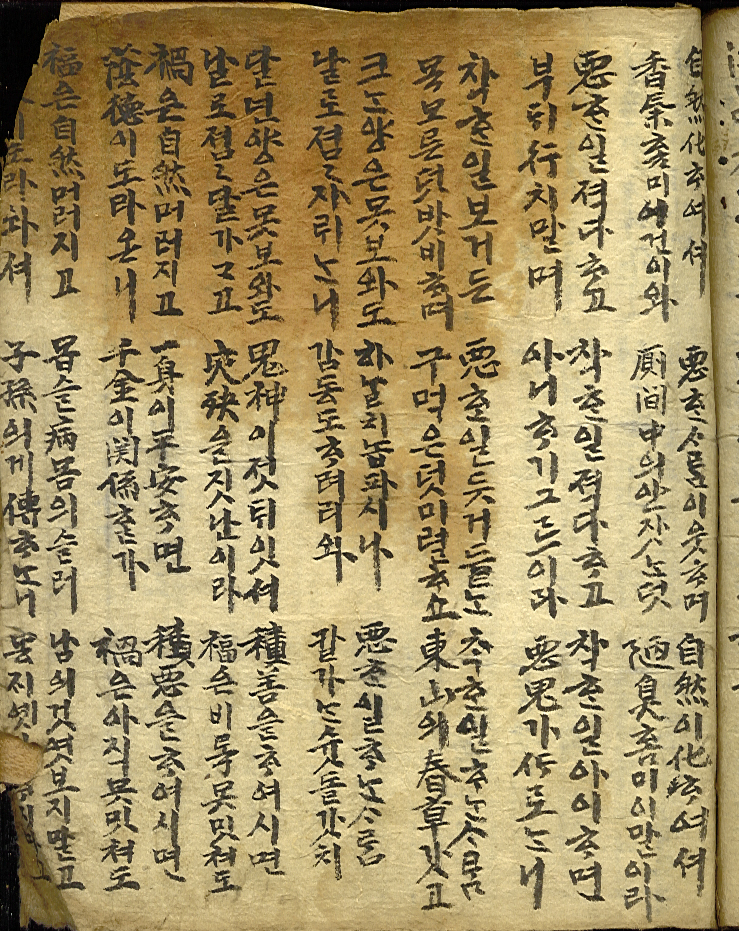 自然化ᄒᆞ여셔
香臭홈미에건이와
惡ᄒᆞᆫ사ᄅᆞᆷ이웃ᄒᆞ며
厠間中의안잣ᄂᆞᆫ덧
自然이化ᄒᆞ여셔
陋臭홈미이만이라
惡ᄒᆞᆫ일젹다ᄒᆞ고
부뒤行치말며
착ᄒᆞᆫ일젹다ᄒᆞ고
아니ᄒᆞ기그르이라
착ᄒᆞᆫ일아이ᄒᆞ면
惡鬼가作로ᄂᆞ니
착ᄒᆞᆫ일보거든
목모른덧밧비ᄒᆞ며
惡ᄒᆞᆫ일듯거든
구먹은덧미련ᄒᆞ쇼
착ᄒᆞᆫ일ᄒᆞᄂᆞᆫ사ᄅᆞᆷ
東山의春草갓고
크ᄂᆞᆫ양은못보와도
날로졈졈자뤼ᄂᆞ니
하날치놉파시나
감동도ᄒᆞ려리와
惡ᄒᆞᆫ일ᄒᆞᄂᆞᆫ사ᄅᆞᆷ
칼가ᄂᆞᆫ숫돌갓치
달년양은못보와도
날로졈졈말가고
鬼神이졋뒤잇셔
灾殃을짓난이라
積善을ᄒᆞ여시면
福은비록못밋쳐도
禍은自然머러지고
蔭德이도라온니
一身이平安ᄒᆞ면
千金이関係ᄒᆞᆯ가
積惡을ᄒᆞ여시면
禍은아직못밋쳐도
福은自然머러지고
이도라와셔
몹슬病몸의슬려
子孫의게傳ᄒᆞᄂᆞ니
남의것엿보지말고